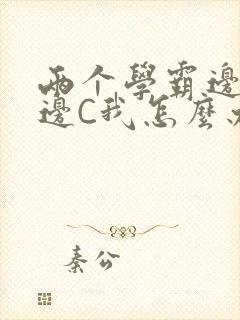 两个學霸邊
邊C我怎麼
秦公